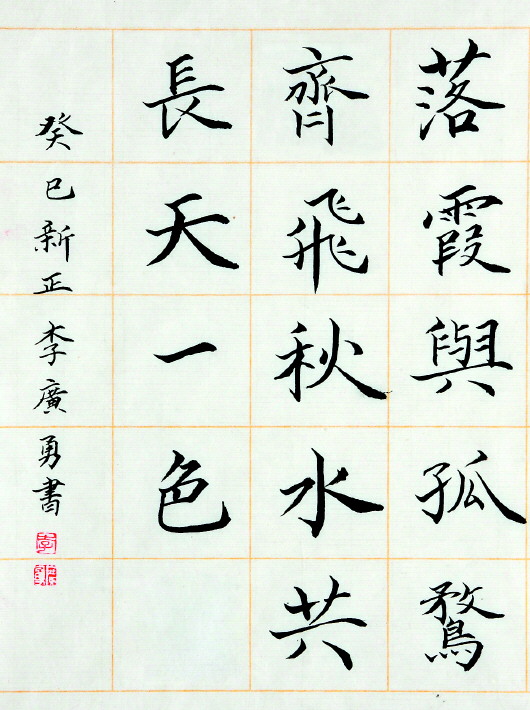 落霞與孤鶩
齊飛秋水共
長天一色
癸巳新正李廣勇書